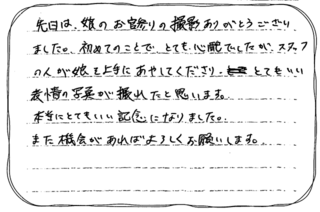 先日は、娘のお宮参りの撮影ありがとうござい
ました。初めてのことで、とても心配でしたが、スタッフ
の人が娘を上手にあやしてくださり、とてもいい
表情の写真が撮れたと思います。
本当にとてもいい記念になりました。
また機会があればよろしくお願いします。